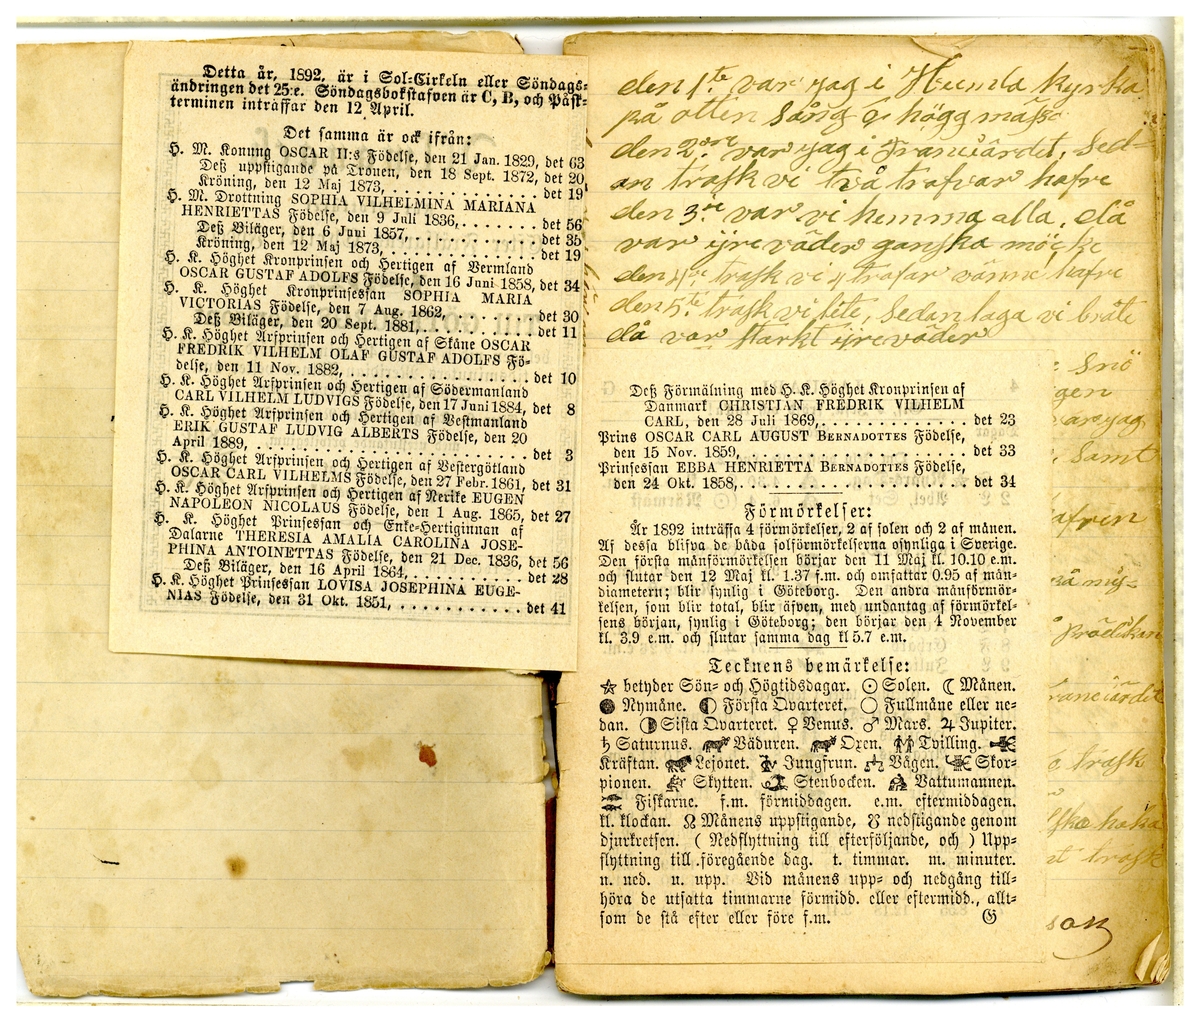 Detta år, 1892, är i Sol-Cirkeln eller Söndags-
ändringen det 25:e. Söndagsbokstafven är C, B, och Påsk-
terminen inträffar den 12 April.
Det samma är ock ifrån:
H. M. Konung OSCAR II:s Födelse, den 21 Jan. 1829, det 63
Deß uppstigande på Tronen, den 18 Sept. 1872, det 20
Kröning, den 12 Maj 1873, . . . . . . . . . . . . . . det 19
H. M. Drottning SOPHIA VILHELMINA MARIANA
HENRIETTAS Födelse, den 9 Juli 1836, . . . . . . . det 56
Deß Biläger, den 6 Juni 1857, . . . . . . . . . . . det 35
Kröning, den 12 Maj 1873, . . . . . . . . . . . . . det 19
H. K. Höghet Kronprinsen och Hertigen af Vermland
OSCAR GUSTAF ADOLFS Födelse, den 16 Juni 1858, det 34
H. K. Höghet Kronprinsessan SOPHIA MARIA
VICTORIAS Födelse, den 7 Aug. 1862, . . . . . . . . det 30
Deß Biläger, den 20 Sept. 1881, . . . . . . . . . . det 11
H. K. Höghet Arfprinsen och Hertigen af Skåne OSCAR
FREDRIK VILHELM OLAF GUSTAF ADOLFS Fö-
delse, den 11 Nov. 1882, . . . . . . . . . . . . . . det 10
H. K. Höghet Arfprinsen och Hertigen af Södermanland
CARL VILHELM LUDVIGS Födelse, den 17 Juni 1884, det 8
H. K. Höghet Arfprinsen och Hertigen af Vestmanland
ERIK GUSTAF LUDVIG ALBERTS Födelse, den 20
April 1889, . . . . . . . . . . . . . . . . . . . . det 3
H. K. Höghet Arfprinsen och Hertigen af Vestergötland
OSCAR CARL VILHELMS Födelse, den 27 Febr. 1861, det 31
H. K. Höghet Arfprinsen och Hertigen af Nerike EUGEN
NAPOLEON NICOLAUS Födelse, den 1 Aug. 1865, det 27
H. K. Höghet Prinsessan och Enke-Hertiginnan af
Dalarne THERESIA AMALIA CAROLINA JOSE-
PHINA ANTOINETTAS Födelse, den 21 Dec. 1836, det 56
Deß Biläger, den 16 April 1864, . . . . . . . . . . det 28
H. K. Höghet Prinsessan LOVISA JOSEPHINA EUGE-
NIAS Födelse, den 31 Okt. 1851, . . . . . . . . . . det 41
den 1te var jag i Hunda kyrka
på otten sång & högg mässa
den 2dre var jag i Franciärdit, Sed-
an trask vi två trafvar hafre
den 3ie var vi hemma alla, då
var ijreväder ganska möcke
den 4re trask vi 4 trafar hafre
den 5te trask vi lite, Sedan laga vi bråte
då var starkt ijreväder
Deß Förmälning med H. K. Höghet Kronprinsen af
Danmark CHRISTIAN FREDRIK VILHELM
CARL, den 28 Juli 1869, . . . . . . . . . . . . . det 23
Prins OSCAR CARL AUGUST BERNADOTTES Födelse,
den 15 Nov. 1859, . . . . . . . . . . . . . . . . det 33
Prinsessan EBBA HENRIETTA BERNADOTTES Födelse,
den 24 Okt. 1858, . . . . . . . . . . . . . . . . det 34
Förmörkelser:
År 1892 inträffa 4 förmörkelser, 2 af solen och 2 af månen.
Af dessa blifva de båda solförmörkelserna osynliga i Sverige.
Den första månförmörkelsen börjar den 11 Maj kl. 10.10 e.m.
och slutar den 12 Maj kl. 1.37 f.m. och omfattar 0.95 af mån-
diametern; blir synlig i Göteborg. Den andra månförmör-
kelsen, som blir total, blir äfven, med undantag af förmörkel-
sens början, synlig i Göteborg; den börjar den 4 November
kl. 3.9 e.m. och slutar samma dag kl 5.7 e.m.
Tecknens bemärkelse:
☆ betyder Sön- och Högtidsdagar. ☉ Solen. ☾ Månen.
● Nymåne. ◐ Första Qvarteret. ○ Fullmåne eller ne-
dan. ◑ Sista Qvarteret. ♀ Venus. ♂ Mars. ♃ Jupiter.
♄ Saturnus. Väduren. Oxen. Tvilling.
Kräftan. Lejonet. Jungfrun. Vågen. Skor-
pionen. Skytten. Stenbocken. Vattumannen.
Fiskarne. f.m. förmiddagen. e.m. eftermiddagen.
kl. klockan. ☊ Månens uppstigande, ☋ nedstigande genom
djurkretsen. ( Nedflyttning till efterföljande, och ) Upp-
flyttning till föregående dag. t. timmar. m. minuter.
n. ned. u. upp. Vid månens upp- och nedgång till-
höra de utsatta timmarne förmidd. eller eftermidd., allt-
som de stå efter eller före f.m. G
snö
gen
samt
trask
haka
trask
son